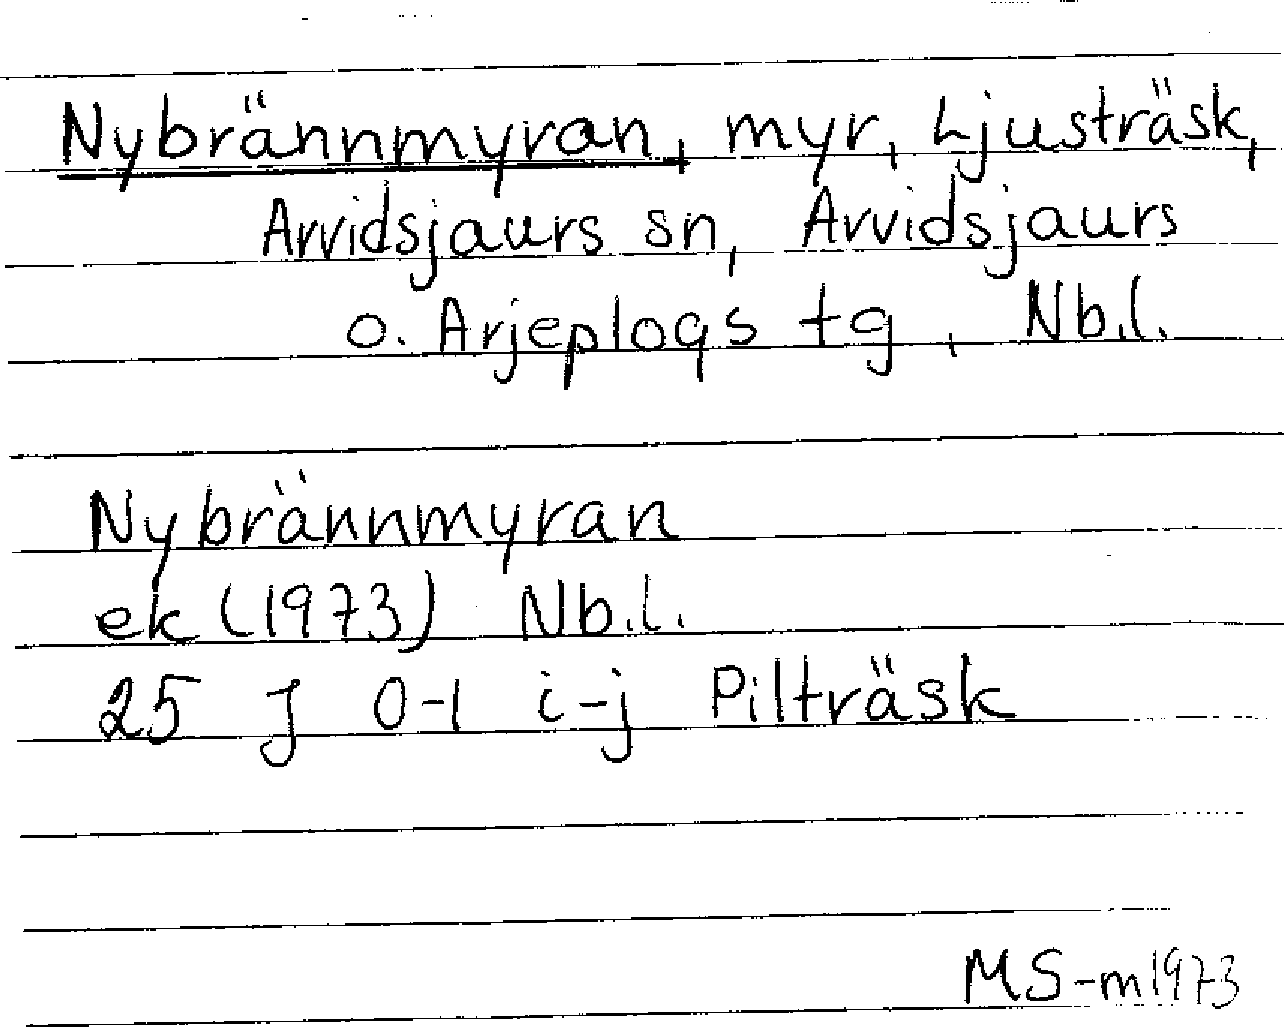 Nybrännmyran, myr, Ljusträsk,
Arvidsjaurs sn, Arvidsjaurs
o. Arjeplogs tg, Nb.l.
Nybrännmyran
ek (1973) Nb.l.
25 J 0-1 i-j Pilträsk
MS-m1973